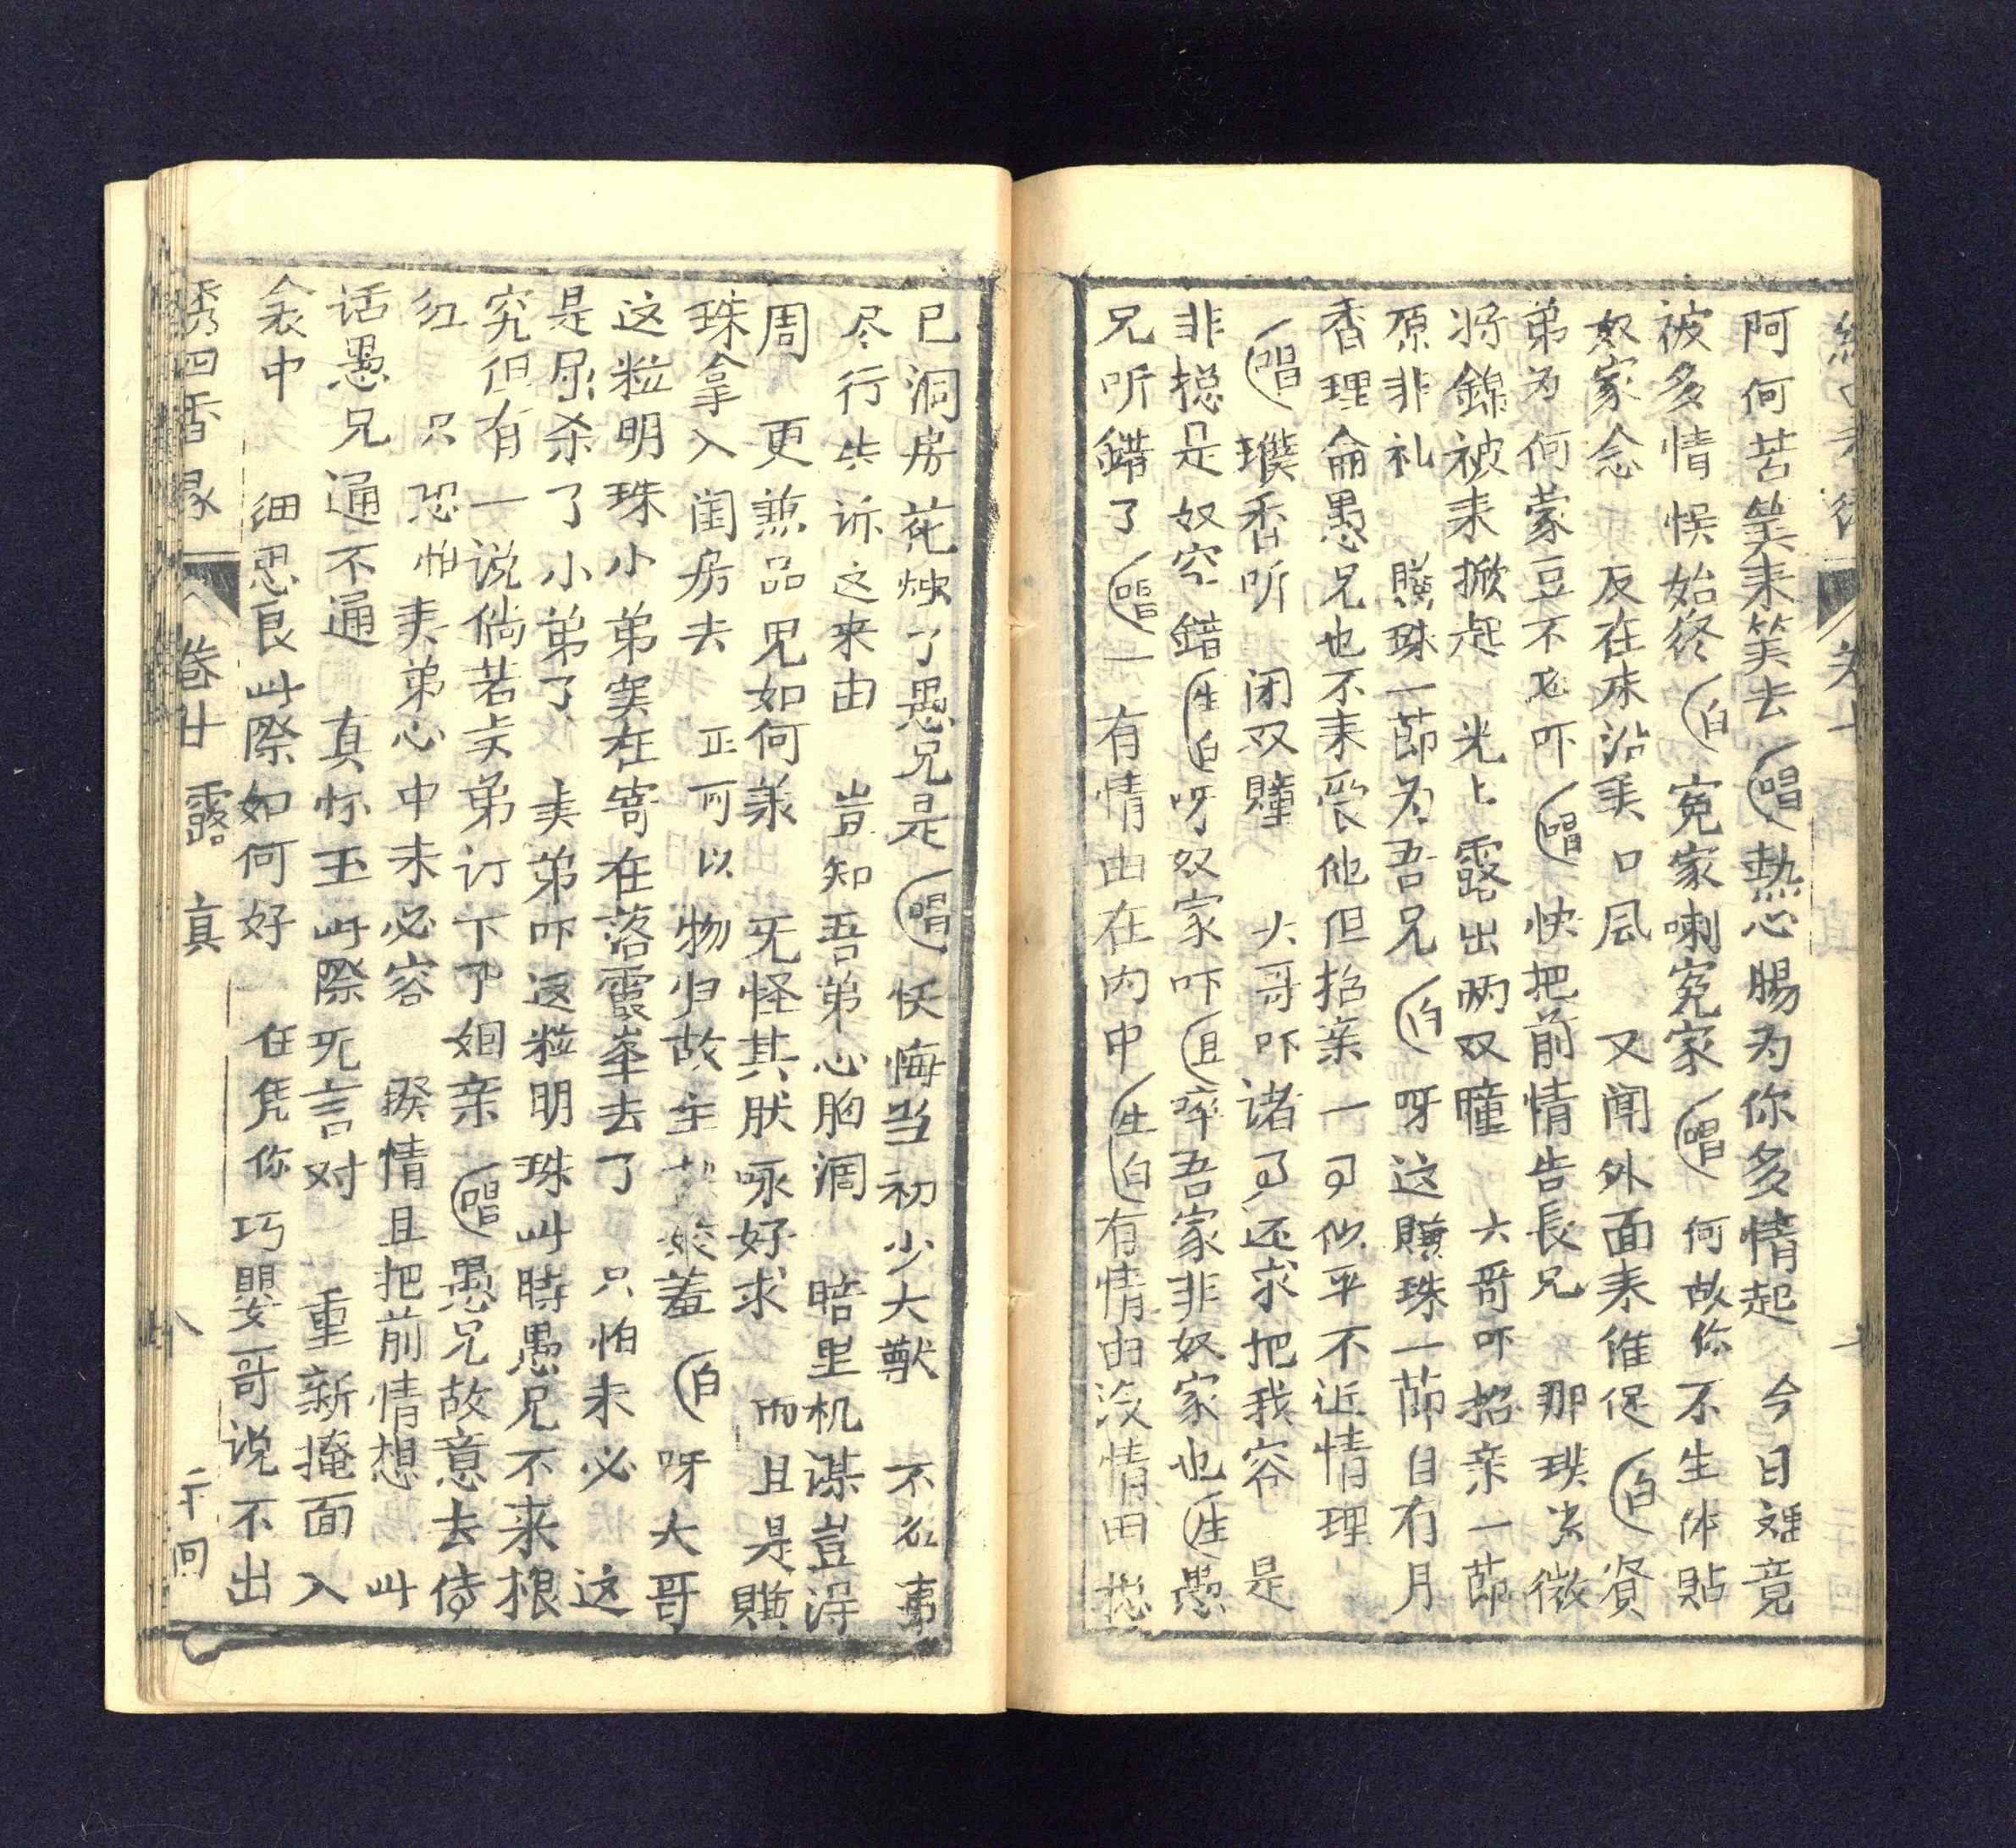 阿何苦笑来笑去唱熱心腸为你多情起今日
被多情悮始终白冤家喇冤家唱何故你不生体貼
奴家念反在床沿美口风又闻外面来催促白賢
弟为何蒙豆不吓唱快把前情告長兄那璞微
将錦被来掀起光上露出两双瞳大哥吓招亲一節
原非礼贜珠一節为吾兄白呀这贜珠一節自有月
香理侖愚兄也不来受他但招亲一司似乎不近情理
唱璞香听闭双瞳大哥吓诸司还求把我容是
非捴是奴空錯生白呀奴家吓旦啐吾家非奴家也生愚
兄听錯了唱一有情由在内中生白有情由没情由捴
已洞房花烛了愚兄是唱恹悔当初少大猷不在事
尽行告诉这来由豈知吾弟心胸濶暗里机谋豈淂
周更兼品皃如何羕旡怪其肰咏好求而且是贜
珠拿入闺房去正可以物归故主姣羞白呀大哥
这粒明珠小弟寔在寄在落霞峯去了只怕未必这
是尿杀了小弟了美弟吓这粒明珠此時愚兄不来根
究但有一说倘若美弟订下了姻亲唱愚兄故意去侍
红只恐怕美弟心中未必容揆情且把前情想此
话愚兄通不通真怀玉此際旡言对重新掩面入
衾中细思良此際如何好任凭你巧嬰哥说不出
绣四香缘 卷廿 露真 八 二十回